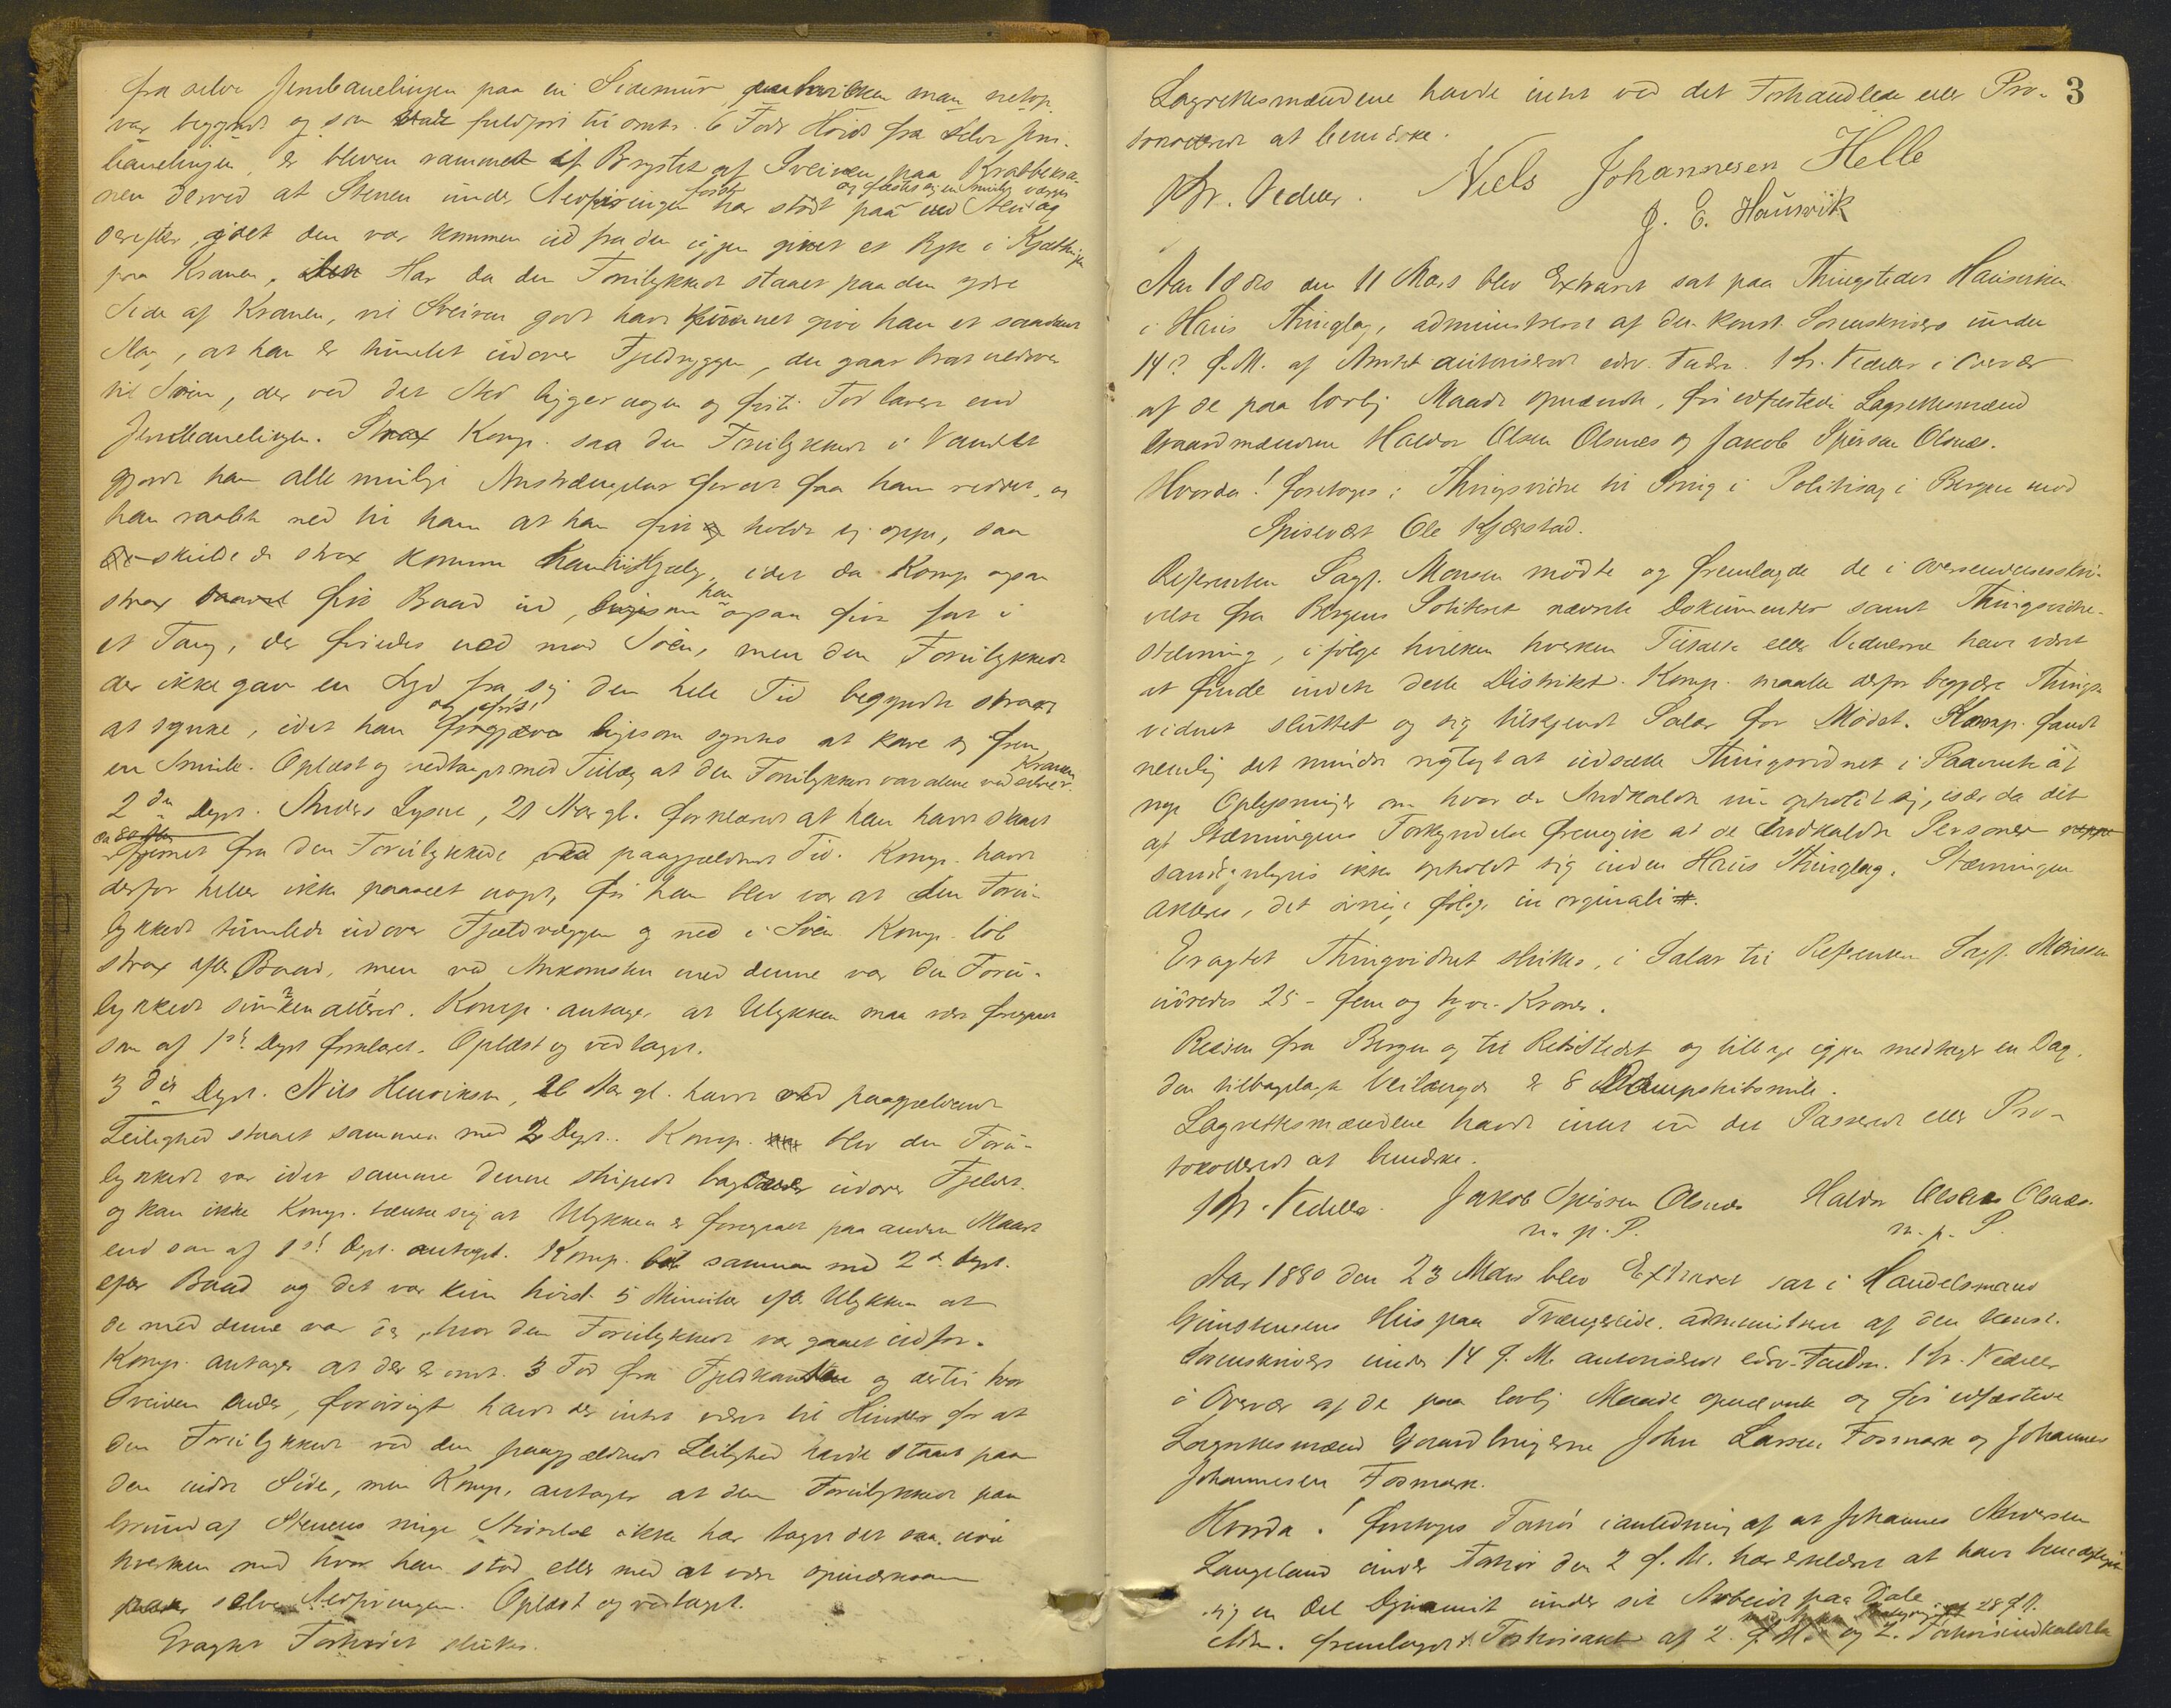 fra selve Jernbanelinjen paa en Sidemur, paa hvilken man netop
var begyndt og som skal fuldføres til omtr. 6 Fods Høide fra selve Jern-
banelinjen, er bleven rammet af Brystet af Sveiven paa Krabbekra-
nen derved at Stenen under Nedfiringen først har stødt paa ved Stenen og
og fæstet sig en Smule væggen
derefter, idet den var kommen ud fra den igjen givet et Ryk i Kjættingen
fra Kranen. Har da den Forulykkede staaet paa den ydre
Side af Kranen, vil Sveiven godt have kunnet give ham et saadant
Slag, at han er tumlet udover Fjeldryggen, der gaar brat nedover
til Søen, der ved det Sted ligger nogen og firti Fod lavere end
Jernbanelinjen. Strax Komp. saa den Forulykkede i Vandet
gjorde han alle mulige Anstrængelser forat faa ham reddet, og
han raabte ned til ham at han fik holde sig oppe, saa
skulde de strax komme ham til Hjælp, idet da Komp. ogsaa
strax fik Baad ud, ligesom han ogsaa fik fat i
et Toug, der firedes ned mod Søen, men den Forulykkede
der ikke gav en Lyd fra sig den hele Tid begyndte strax
at synke, idet han forgjæves ligesom syntes at kave sig frem
en Smule. Oplæst og vedtaget med Tillæg at den Forulykkede var alene ved selve Kranen.
2den Dept. Anders Lysne, 21 Aar gl. forklarede at han havde staaet
fjernet fra den Forulykkede ved paagjældende Tid. Komp. havde
derfor heller ikke paaseet noget, før han blev var at den Foru-
lykkede tumlede udover Fjeldvæggen og ned i Søen. Komp. løb
strax efter Baad, men ved Ankomsten med denne var den Foru-
lykkede sunken allerede. Komp. antager at Ulykken maa være foregaaet
som af 1ste Dept forklaret. Oplæst og vedtaget.
3die Dept. Nils Henriksen, 26 Aar gl. havde ved paagjældende
Leilighed staaet sammen med 2 Dept. Komp. blev den Foru-
lykkede var idet samme denne stupede baglænds udover Fjeldet
og kan ikke Komp. tænke sig at Ulykken er foregaaet paa anden Maade
end som af 1ste Dept. antaget. Komp. løb sammen med 2de Dept.
efter Baad og det var kun høist 5 Minuter efter Ulykken at
de med denne var der, hvor den Forulykkede var gaaet udfor.
Komp. antager at der er omt. 3 Fod fra Fjeldkanten og dertil hvor
Sveiven ender, forøvrigt havde der intet været til Hinder for at
den Forulykkede ved den paagjældende Leilighed havde staaet paa
den indre Side, men Komp. antager at den Forulykkede paa
Grund af Stenens ringe Størrelse ikke har taget det saa nøie
hverken med hvor han stod eller med at være opmærksom
paa selve Nedfiringen. Oplæst og vedtaget.
Eragtet Forhøret sluttes.
3
Lagrettesmændene havde intet ved det Forhandlede eller Pro-
tokollerede at bemærke.
Chr. Vedeler. Niels Johannesen Helle
J. E. Hausvik
Aar 1880 den 11 Mars blev Extraret sat paa Thingstedet Hausviken
i Haus Thinglag, administreret af den konst. Sorenskriver under
14 d. M. af Amtet autoriserede edsv. Fuldm. Chr. Vedeler i Overvær
af de paa lovlig Maade opnævnte, før edfæstede Lagrettesmænd
Gaardmændene Haldor Olsen Olsnæs og Jakob Spersen Olsnæs.
Hvorda! foretoges: Thingsvidne til Brug i Politisag i Bergen mod
Spisevært Ole Kjærstad.
Referenten Sagf. Monsen mødte og fremlagde de i Oversendelsesskri-
velse fra Bergens Politiret nævnte Dokumenter samt Thingsvidne-
stævning, ifølge hvilken hverken Tiltalte eller Vidnerne have været
at finde inden dette Distrikt. Komp. maatte derfor begjære Things-
vidnet sluttet og sig tilkjendt Salær for Mødet. Komp. fandt
nemlig det mindre rigtigt at udsætte Thingsvidnet i Paavente af
nye Oplysninger om hvor de Indkaldte nu opholdt sig, især da det
af Stævningens Forkyndelse fremgik at de Indkaldte Personer
sandsynligvis ikke opholdt sig inden Haus Thinglag. Stævningen
akteres, det øvrige følger in originali.
Eragtet Thingsvidnet sluttes, i Salær til Referenten Sagf. Monsen
udredes 25 - fem og tyve - Kroner.
Reisen fra Bergen og til Retsstedet og tilbage igjen medtager en Dag,
den tilbagelagte Veilængde er 8 Dampskibsmile.
Lagrettesmændene havde intet ved det Passerede eller Pro-
tokollerede at bemærke.
Chr. Vedeler. Jakob Spersen Olsnæs Haldor Olsen Olsnæs.
m. p. P. m. p. P.
Aar 1880 den 23 Mars blev Extraret sat i Handelsmand
Gunstensens Hus paa Trængereide, administreret af den konst.
Sorenskrivers under 14 d. M. autoriserede edsv. Fuldm. Chr. Vedeler
i Overvær af de paa lovlig Maade opnævnte og før edfæstede
Lagrettesmænd Gaardbrugerne John Larsen Fosmark og Johannes
Johannesen Fosmark.
Hvorda! foretoges Forhør i anledning af at Johannes Andersen
Langeland under Forhør den 2 d. M. har erklæret at have bemægtiget
sig en Del Dynamit under sit Arbeide paa Dale
Adm. fremlagde Forhørsakt af 2. d. M. og 2. Forhørsindkaldelse